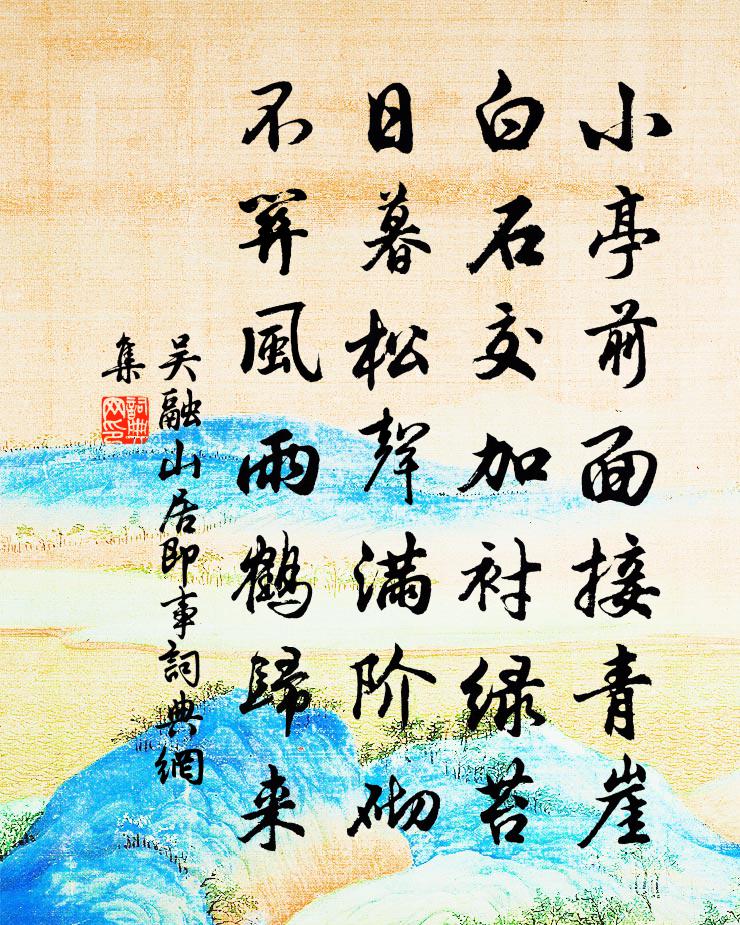 小亭前面接青崖
白石交加衬绿苔
日暮松聲满阶砌
不关風雨鶴歸来
吴融山居即事詞典網
集
詞典网印